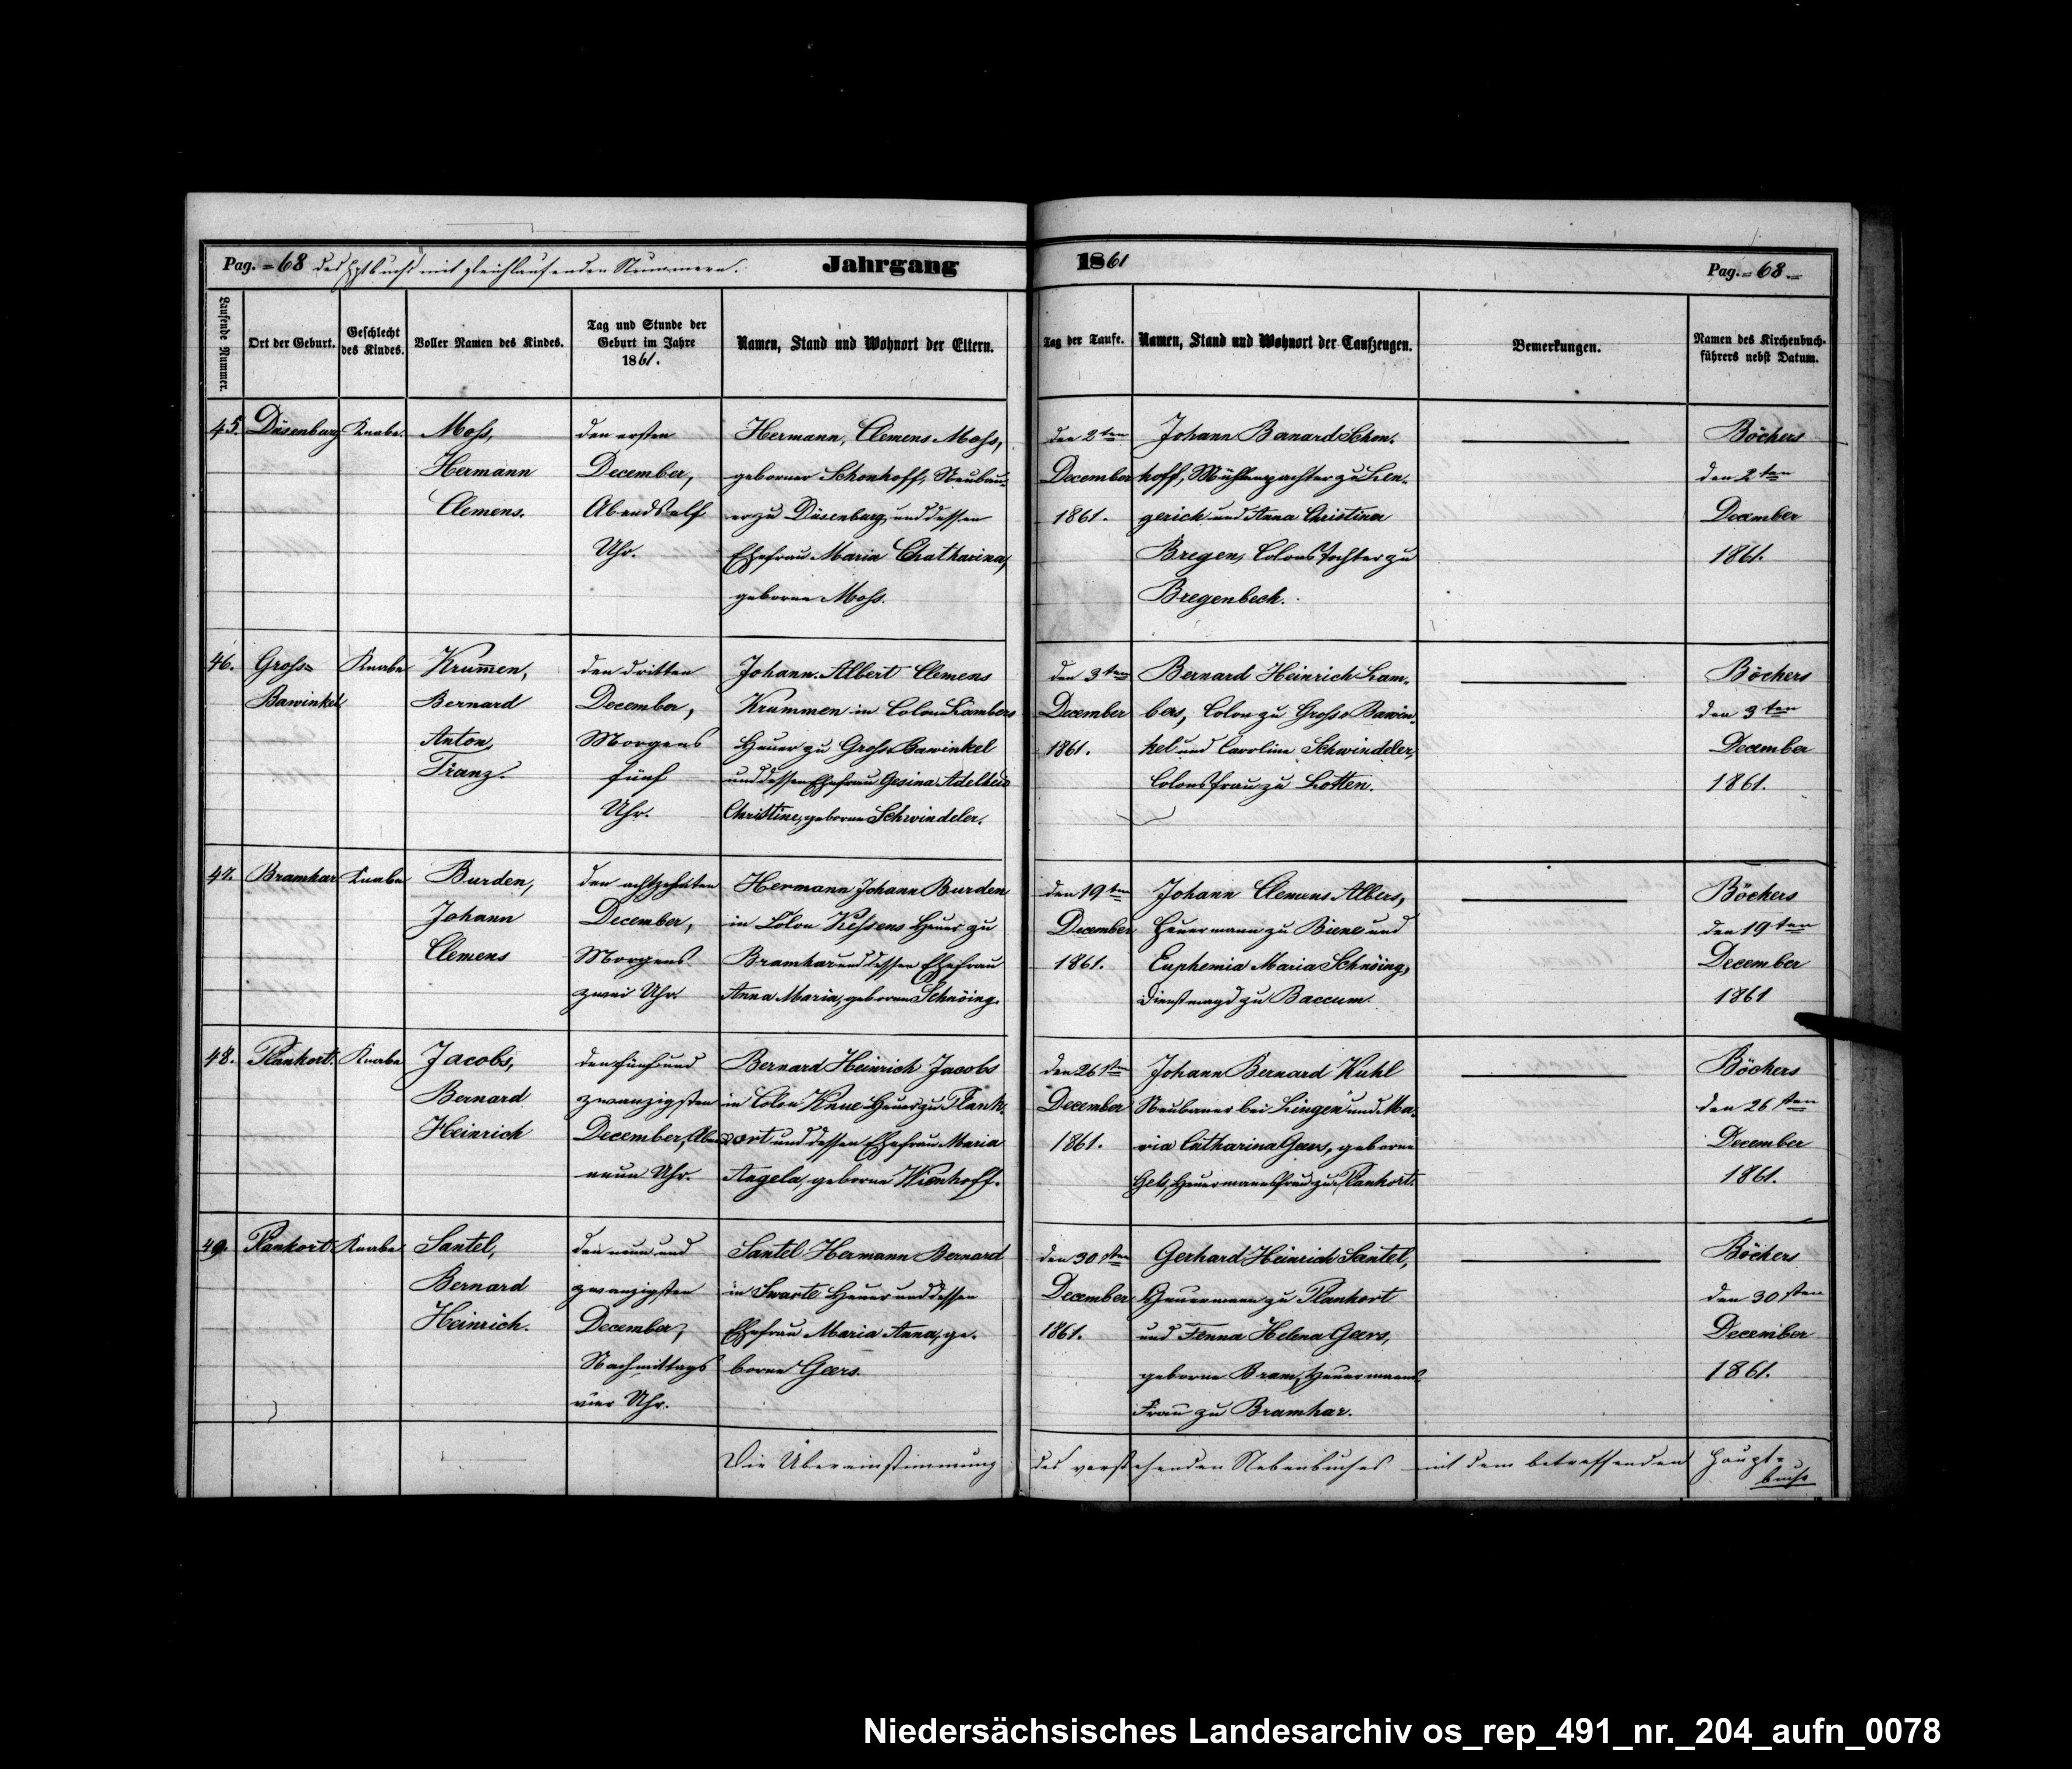 Pag. = 68 des Hptbuchs mit gleichlaufenden Nummern.
Jahrgang
1861
Pag. = 68. =
Laufende Nummer.
Ort der Geburt.
Geschlecht
des Kindes.
Voller Namen des Kindes.
Tag und Stunde der
Geburt im Jahre
1861.
Namen, Stand und Wohnort der Eltern.
Tag der Taufe.
Namen, Stand und Wohnort der Taufzeugen.
Bemerkungen.
Namen des Kirchenbuch-
führers nebst Datum.
45.
Düsenburg
Knabe.
Moß,
Hermann
Clemens.
den ersten
December,
Abends elf
Uhr.
Hermann, Clemens Moß,
geborner Schonhoff, Neubau-
er zu Düsenburg, und dessen
Ehefrau Maria Chatharina,
geborne Moß.
den 2ten
December
1861.
Johann Bernard Schon-
hoff, Mühlenpachter zu Len-
gerich und Anna Christina
Bregen, Colons Tochter zu
Bregenbeck.
Böckers
den 2ten
December
1861.
46.
Groß=
Bawinkel
Knabe
Krum̅en,
Bernard
Anton,
Franz.
den dritten
December,
Morgens
fünf
Uhr.
Johann. Albert Clemens
Krummen in Colon Lambers
Heuer zu Groß Bawinkel
und dessen Ehefrau Gesina Adelheid
Christine, geborne Schwindeler.
den 3ten
December
1861.
Bernard Heinrich Lam-
bers, Colon zu Groß Bawin-
kel und Caroline Schwindeler,
Colonsfrau zu Lotten.
Böckers
den 3ten
December
1861.
47.
Bramhar
Knabe
Burden,
Johann
Clemens
den achtzehnten
December,
Morgens
zwei Uhr.
Hermann Johann Burden
in Colon Keßens Heuer zu
Bramhar und dessen Ehefrau
Anna Maria, geborne Schnöing.
den 19ten
December
1861.
Johann Clemens Albers,
Heuermann zu Biene und
Euphemia Maria Schnöing,
Dienstmagd zu Baccum.
Böckers
den 19ten
December
1861
48.
Plankort.
Knabe
Jacobs,
Bernard
Heinrich
den fünf und
zwanzigsten
December, Abends
neun Uhr.
Bernard Heinrich Jacobs
in Colon Knue Heuer zu Plank-
ort und dessen Ehefrau Maria
Angela, geborne Wienhoff.
den 26sten
December
1861.
Johann Bernard Kuhl
Neubauer bei Lingen und Ma-
ria Catharina Geers, geborne
Hels, Heuermannsfrau zu Plankort.
Böckers
den 26sten
December
1861.
49.
Plankort
Knabe
Santel,
Bernard
Heinrich.
den neun und
zwanzigsten
December,
Nachmittags
vier Uhr.
Santel Hermann Bernard
in Swarte Heuer und dessen
Ehefrau Maria Anna, ge-
borne Geers.
den 30sten
December
1861.
Gerhard Heinrich Santel,
Heuermann zu Plankort
und Fenna Helena Geers,
geborne Bram, Heuermanns-
Frau zu Bramhar.
Böckers
den 30sten
December
1861.
Die Übereinstimmung des vorstehenden Nebenbuches mit dem betreffenden Haupt-
buche
Niedersächsisches Landesarchiv os_rep_491_nr._204_aufn_0078